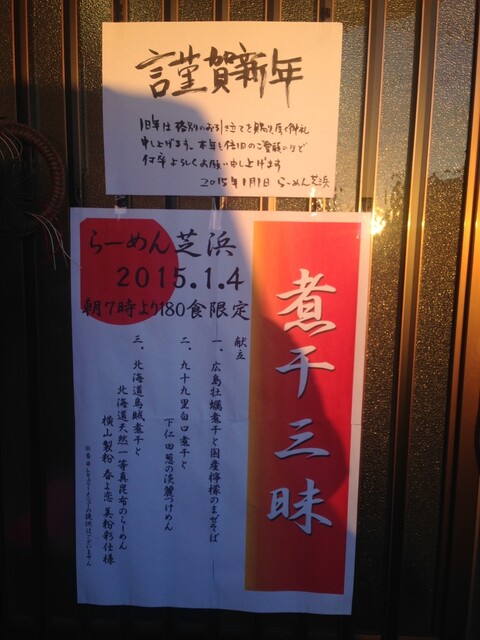 謹賀新年
旧年は格別のお引き立てを賜り厚く御礼
申し上げます。本年も倍旧のご愛顧の程
何卒よろしくお願い申し上げます
2015年1月1日 らーめん芝浜
らーめん芝浜
2015.1.4
朝7時より180食限定
煮干三昧
献立
一、広島牡蠣煮干と国産檸檬のまぜそば
二、九十九里白口煮干と
下仁田葱の淡麗つけめん
三、北海道烏賊煮干と
北海道天然一等真昆布のらーめん
横山製粉 春よ恋 美粉彩仕様